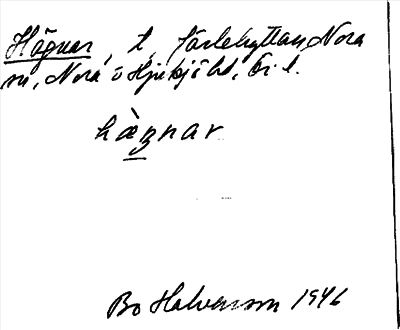 Högnar, t, Järlehyttan, Nora
sn, Nora o Hjulsjö hd, Ör. l.
hàgnar
Bo Halvarsson 1946